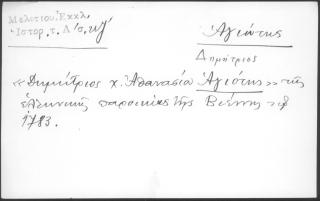 Μελετίου Ἐκκλ.
Ἱστορ. τ. Δ΄ σ.
Ἁγιώτης
Δημήτριος
«Δημήτριος χ. Ἀθανασία Ἁγιότης» τῆς
ἑλληνικῆς παροικίας τῆς Βιέννης
1783.